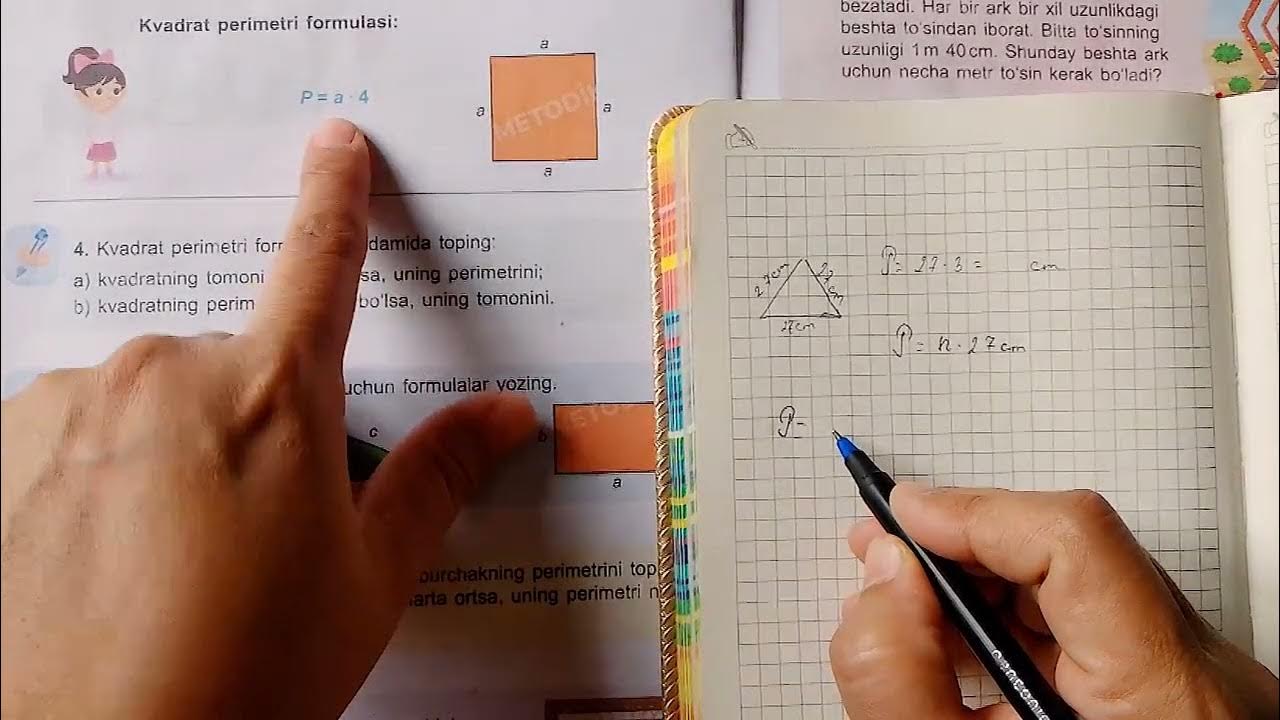 Kvadrat perimetri formulasi:
P = a · 4
a
a
a
a
METODI
4. Kvadrat perimetri damida toping:
a) kvadratning tomoni sa, uning perimetrini;
b) kvadratning perim bo'lsa, uning tomonini.
uchun formulalar yozing.
c
b
a
METO
burchakning perimetrini top
arta ortsa, uning perimetri n
bezatadi. Har bir ark bir xil uzunlikdagi
beshta to'sindan iborat. Bitta to'sinning
uzunligi 1 m 40 cm. Shunday beshta ark
uchun necha metr to'sin kerak bo'ladi?
27cm
27cm
27cm
P = 27 · 3 = cm
P = n · 27cm
P =